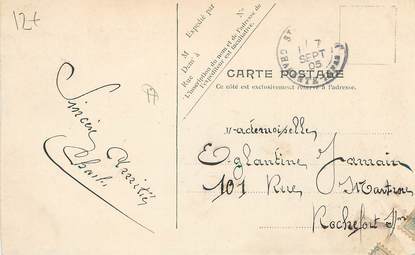 12+
Expédié par
M
Dem t à
Rue
N°
L'inscription du nom et de l'adresse de
l'expéditeur est facultative.
7
SEPT
05
CARTE POSTALE
Ce côté est exclusivement réservé à l'adresse.
Sincère Amitié
Charles
Mademoiselle
Eglantine Jamain
101 Rue Martrou
Rochefort s/m